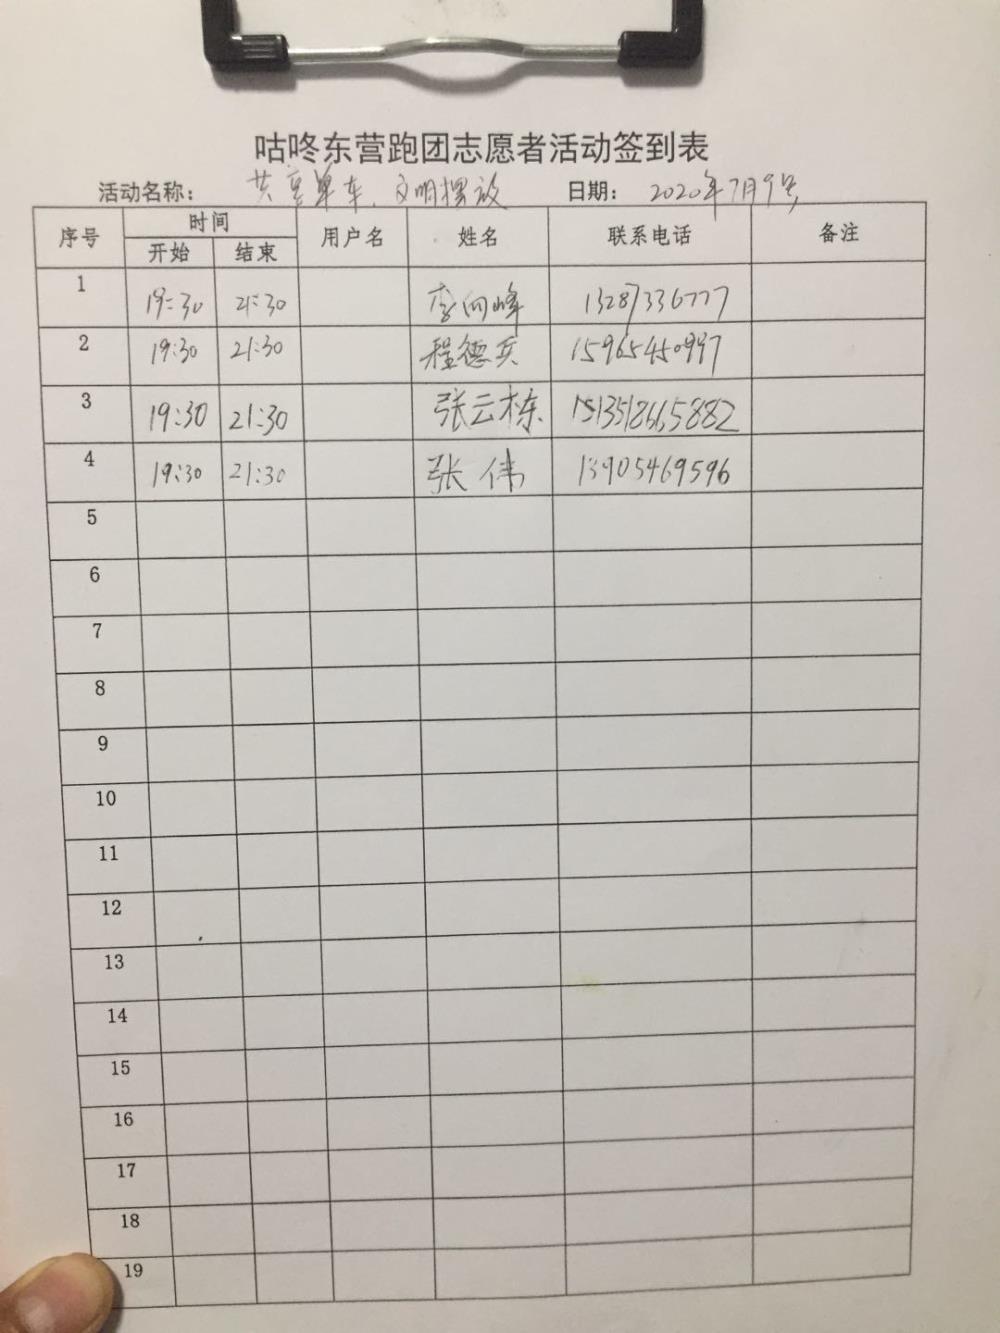 咕咚东营跑团志愿者活动签到表
活动名称： 共享单车、文明摆放 日期： 2020年7月9号
序号 时间 用户名 姓名 联系电话 备注
开始 结束
1 19:30 21:30 李向峰 13287336777
2 19:30 21:30 程德兵 15965450997
3 19:30 21:30 张云栋
4 19:30 21:30 张伟 13905469596
5
6
7
8
9
10
11
12
13
14
15
16
17
18
19